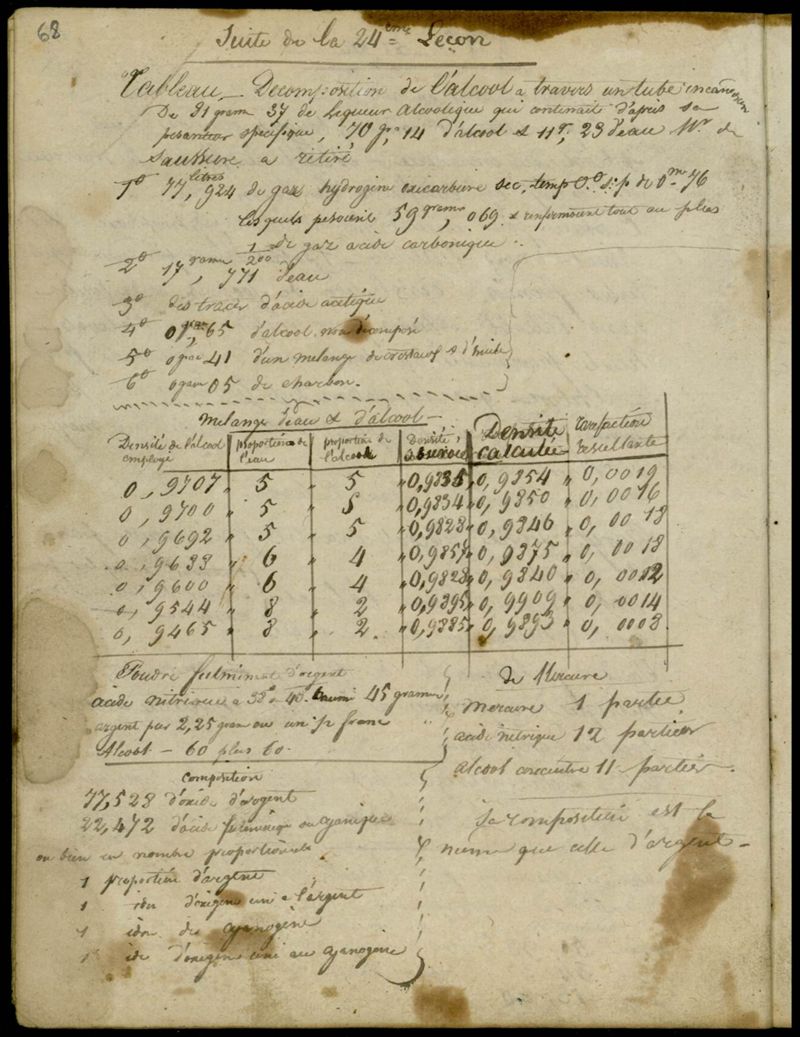 68
Suite de la 24eme Leçon
Tableau - Decomposition de l'alcool a travers un tube incandescent
De 81 gram 37 de Liqueur alcoolique qui contenait d'après sa
pesanteur spécifique, 70 gr, 14 d'alcool & 11 gr, 23 d'eau Mr de
Saussure a retiré
1° 77 litres, 924 de gaz hydrogène oxicarburé sec, temp 0.° s: p de 0m 76
lesquels pesoient 59 grammes, 069 & renfermoient tout au plus
1/200 de gaz acide carbonique.
2° 17 gramm, 771 d'eau
3° des traces d'acide acétique
4° 0 gram, 65 d'alcool non décomposé
5° 0 gram 41 d'un melange de cristaux & d'huile
6° 0 gram 05 de charbon.
Melange d'eau & d'alcool -
Densité de l'alcool employé | proportion de l'eau | proportion de l'alcool | Densité observée | Densité calculée | rarefaction resultante
0, 9707 " 5 " 5 " 0,9835 " 0, 9854 " 0, 0019
0, 9700 " 5 " 5 " 0,9834 " 0, 9850 " 0, 0016
0, 9692 " 5 " 5 " 0,9828 " 0, 9846 " 0, 0018
0, 9633 " 6 " 4 " 0,9857 " 0, 9875 " 0, 0018
0, 9600 " 6 " 4 " 0,9828 " 0, 9840 " 0, 0012
0, 9544 " 8 " 2 " 0,9895 " 0, 9909 " 0, 0014
0, 9465 " 8 " 2 " 0,9885 " 0, 9893 " 0, 0008
Poudre fulminant d'argent
composition
77,528 d'oxide d'argent
22,472 d'acide fulminique ou cyanique
ou bien en nombre proportionnels
1 proportion d'argent
1 idem d'oxigene uni a l'argent
1 idem de cyanogène
1 ide d'oxigene uni au cyanogène
de Mercure
Sa composition est la
meme que celle d'argent -